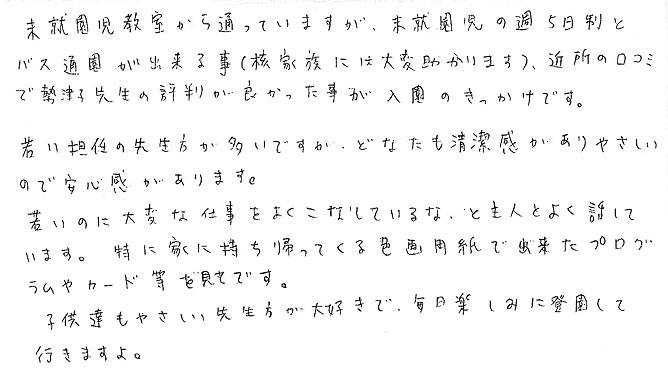 未就園児教室から通っていますが、未就園児の週5日制と
バス通園が出来る事(核家族には大変助かります)、近所の口コミ
で勢津子先生の評判が良かった事が入園のきっかけです。
若い担任の先生方が多いですが、どなたも清潔感がありやさしい
ので安心感があります。
若いのに大変な仕事をよくこなしているな、と主人とよく話して
います。特に家に持ち帰ってくる色画用紙で出来たプログ
ラムやカード等を見てです。
子供達もやさしい先生方が大好きで、毎日楽しみに登園して
行きますよ。